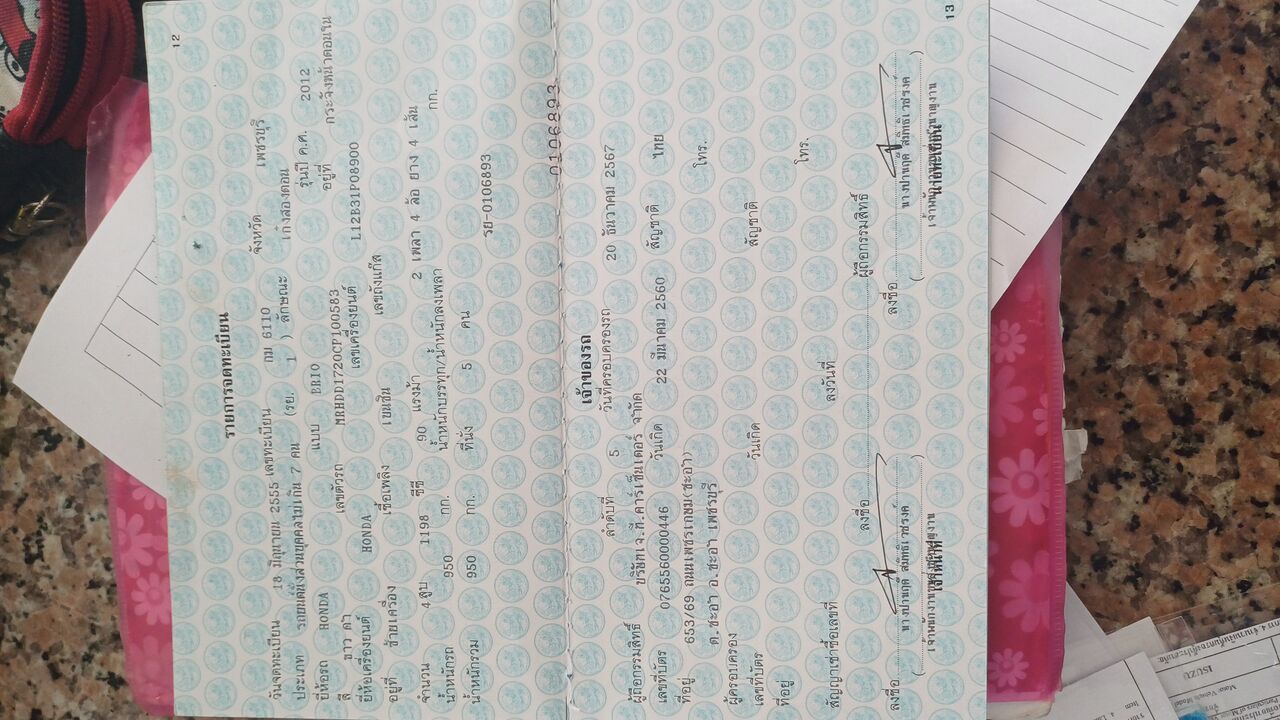 12
รายการจดทะเบียน
วันจดทะเบียน 18 มิถุนายน 2555 เลขทะเบียน กม 6110 จังหวัด เพชรบุรี
ประเภท รถยนต์นั่งส่วนบุคคลไม่เกิน 7 คน (รย. 1 ) ลักษณะ เก๋งสองตอน
ยี่ห้อรถ HONDA แบบ BRIO รุ่นปี ค.ศ. 2012
สี ขาว ดำ เลขตัวรถ MRHDD1720CP100583 อยู่ที่ กระจังหน้าตอนใน
ยี่ห้อเครื่องยนต์ HONDA เลขเครื่องยนต์ L12B31P08900
อยู่ที่ ซ้ายเครื่อง เชื้อเพลิง เบนซิน เลขถังแก๊ส
จำนวน 4 สูบ 1198 ซีซี 90 แรงม้า 2 เพลา 4 ล้อ ยาง 4 เส้น
น้ำหนักรถ 950 กก. น้ำหนักบรรทุก/น้ำหนักลงเพลา กก.
น้ำหนักรวม 950 กก. ที่นั่ง 5 คน
รย-0106893
0106893
เจ้าของรถ
ลำดับที่ 5 วันที่ครอบครองรถ 20 ธันวาคม 2567
ผู้ถือกรรมสิทธิ์ บริษัทเจ.ที.คาร์เซ็นเตอร์ จำกัด
เลขที่บัตร 0765560000446 วันเกิด 22 มีนาคม 2560 สัญชาติ ไทย
ที่อยู่ 653/69 ถนนเพชรเกษม(ชะอำ) โทร.
ต.ชะอำ อ.ชะอำ เพชรบุรี
ผู้ครอบครอง
เลขที่บัตร วันเกิด สัญชาติ
ที่อยู่ โทร.
สัญญาเช่าซื้อเลขที่ ลงวันที่
ลงชื่อ ผู้ถือกรรมสิทธิ์
ลงชื่อ ลงชื่อ
13
ISUZU